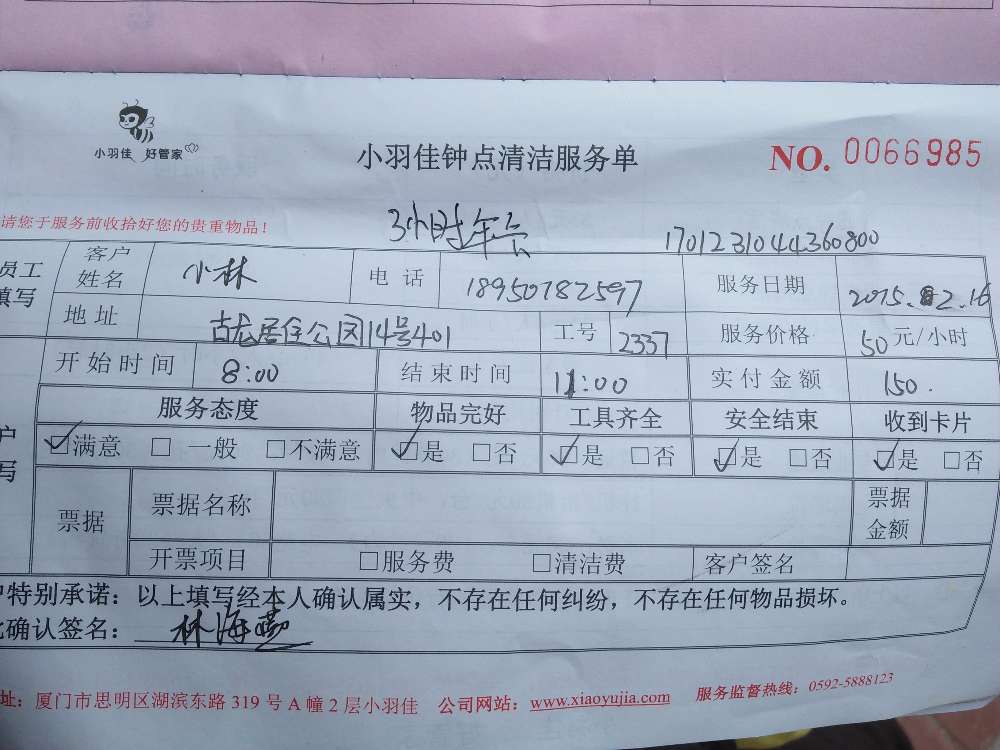 小羽佳 好管家
小羽佳钟点清洁服务单
NO. 0066985
请您于服务前收拾好您的贵重物品！
3小时年卡
1701231044360800
员工填写
客户姓名 小林 电话 18950782597 服务日期 2015.2.16
地址 古龙居住公园14号401 工号 2337 服务价格 50元/小时
开始时间 8:00 结束时间 11:00 实付金额 150.
服务态度 物品完好 工具齐全 安全结束 收到卡片
户写
☑满意 □一般 □不满意 ☑是 □否 ☑是 □否 ☑是 □否 ☑是 □否
票据 票据名称 票据金额
开票项目 □服务费 □清洁费 客户签名
户特别承诺：以上填写经本人确认属实，不存在任何纠纷，不存在任何物品损坏。
此确认签名： 林海燕
址：厦门市思明区湖滨东路319号A幢2层小羽佳 公司网站：www.xiaoyujia.com 服务监督热线：0592-5888123